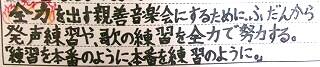 全力を出す親善音楽会にするために、ふだんから
発声練習や歌の練習を全力で努力する。
「練習を本番のように本番を練習のように。」